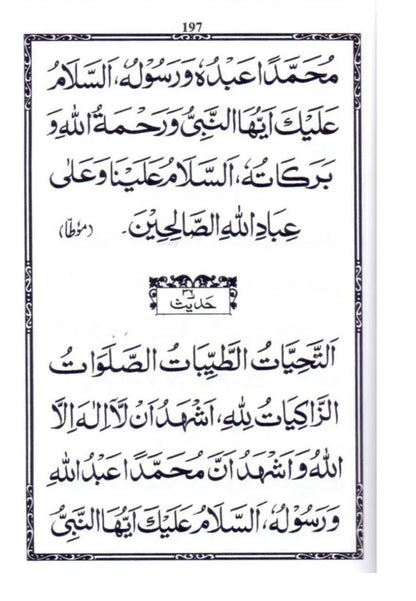 197
مُحَمَّدًا عَبْدُهٗ وَرَسُوْلُهٗ، اَلسَّلَامُ
عَلَيْكَ اَيُّهَا النَّبِيُّ وَرَحْمَةُ اللهِ وَ
بَرَكَاتُهٗ، اَلسَّلَامُ عَلَيْنَا وَعَلٰى
عِبَادِ اللهِ الصَّالِحِيْنَ۔ (مؤطا)
حديث ٣٦
اَلتَّحِيَّاتُ الطَّيِّبَاتُ الصَّلَوَاتُ
الزَّاكِيَاتُ لِلّٰهِ، اَشْهَدُ اَنْ لَّا اِلٰهَ اِلَّا
اللهُ وَاَشْهَدُ اَنَّ مُحَمَّدًا عَبْدُ اللهِ
وَرَسُوْلُهٗ، اَلسَّلَامُ عَلَيْكَ اَيُّهَا النَّبِيُّ